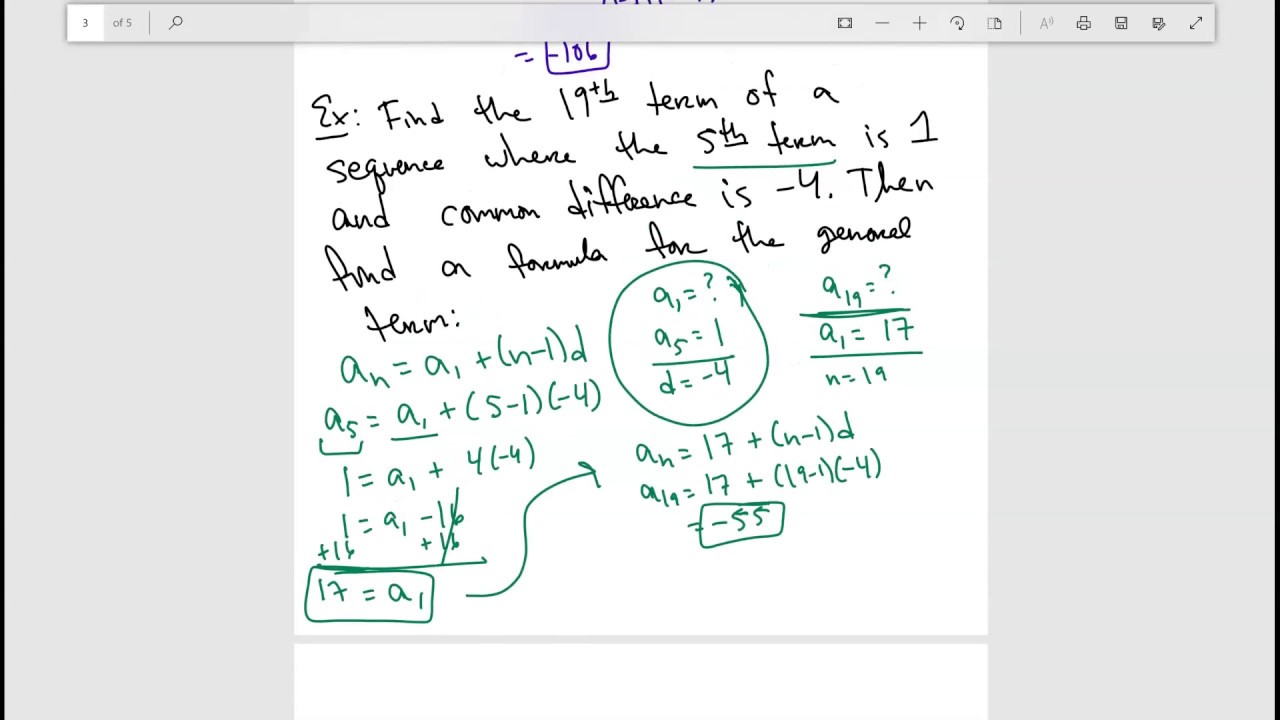 3 of 5
= -106
Ex: Find the 19th term of a
sequence where the 5th term is 1
and common difference is -4. Then
find a formula for the general
term:
an = a1 + (n-1)d
a5 = a1 + (5-1)(-4)
1 = a1 + 4(-4)
1 = a1 - 16
+16 +16
17 = a1
a1 = ?
a5 = 1
d = -4
a19 = ?
a1 = 17
n = 19
an = 17 + (n-1)d
a19 = 17 + (19-1)(-4)
= -55